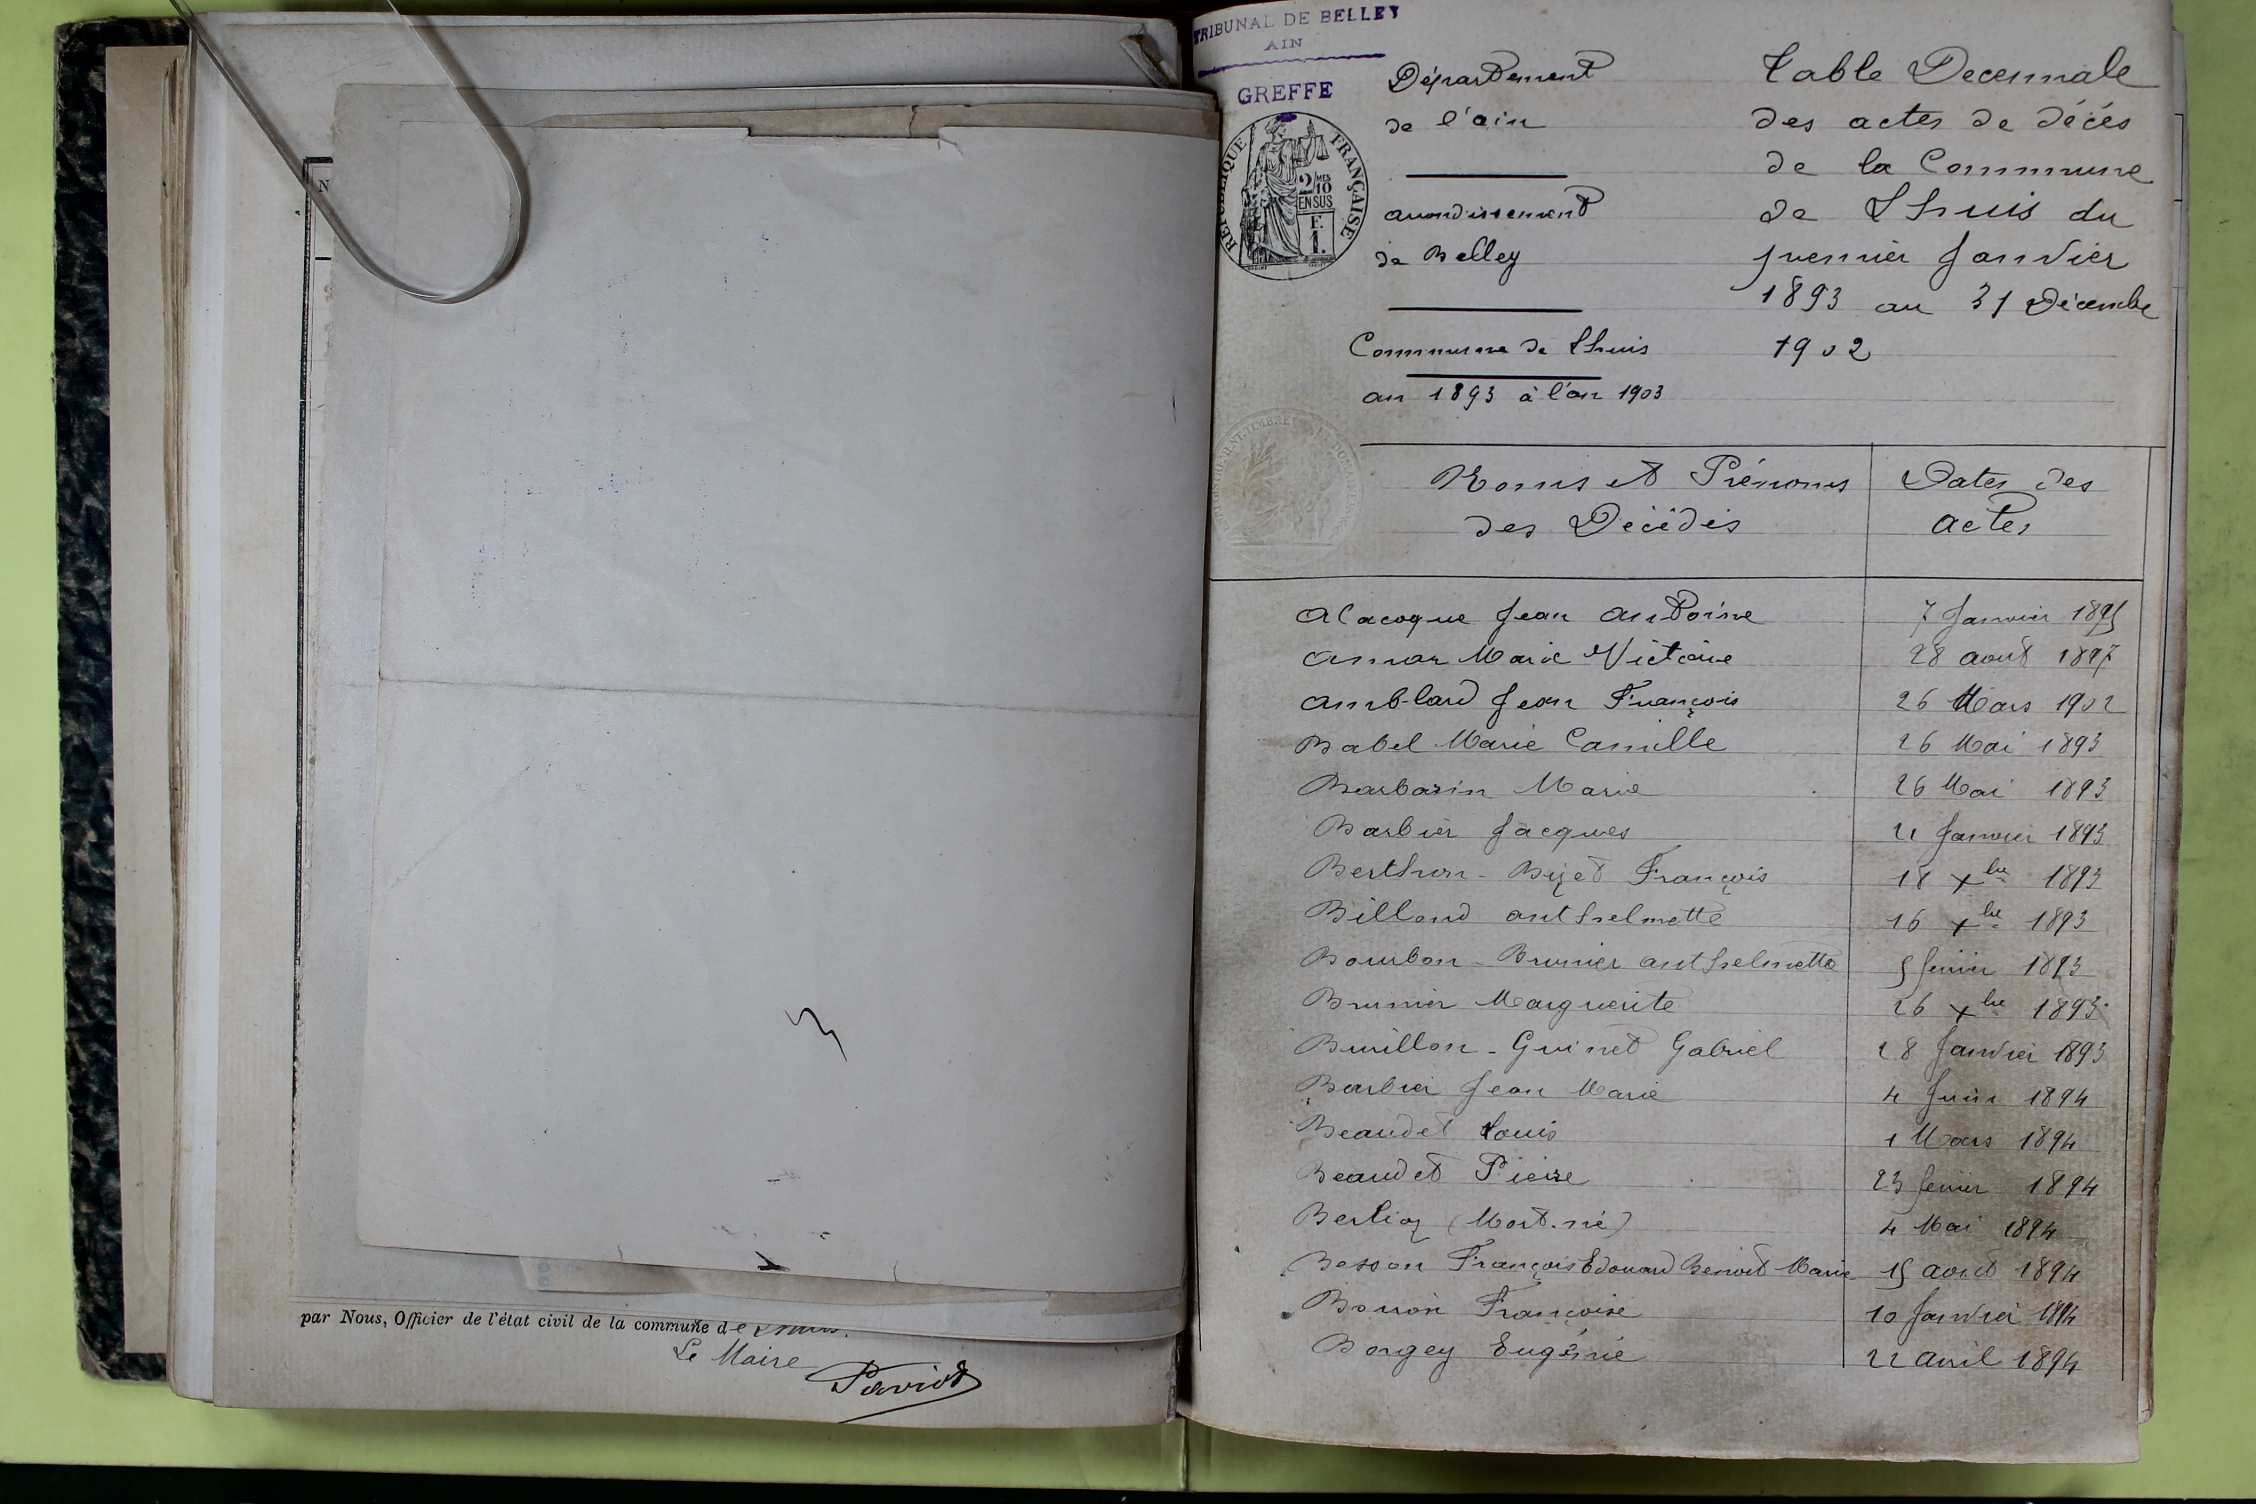 N
par Nous, Officier de l'état civil de la commune de Lhuis.
Le Maire
Paviot
TRIBUNAL DE BELLEY
AIN
GREFFE
RÉPUBLIQUE FRANÇAISE
2/10 MES
EN SUS
F.
1.
Département
de l'ain
arrondissement
de Belley
Commune de Lhuis
an 1893 à l'an 1903
Table Decennale
des actes de décés
de la Commune
de Lhuis du
premier Janvier
1893 au 31 Décembre
1902
Noms et Prénoms
des Décédés
Dates des
actes
Alacoque Jean Antoine 7 Janvier 1895
Amar Marie Victoire 28 aout 1897
Amblard Jean François 26 Mars 1902
Babel Marie Camille 26 Mai 1893
Barbarin Marie 26 Mai 1893
Barbier Jacques 21 Janvier 1893
Berthron - Bizet François 18 Xbre 1893
Billand anthelmette 16 Xbre 1893
Bourbon - Brunier anthelmette 5 fevrier 1893
Brunier Marguerite 26 Xbre 1893
Buvillon - Guinet Gabriel 28 Janvier 1893
Barbier Jean Marie 4 Juin 1894
Beaudet Louis 1 Mars 1894
Beaudet Pierre 23 fevrier 1894
Berlioz (Mort-né) 4 Mai 1894
Besson François Edouard Benoit Marie 15 aout 1894
Françoise 10 Janvier 1894
Borgey Eugénie 22 avril 1894